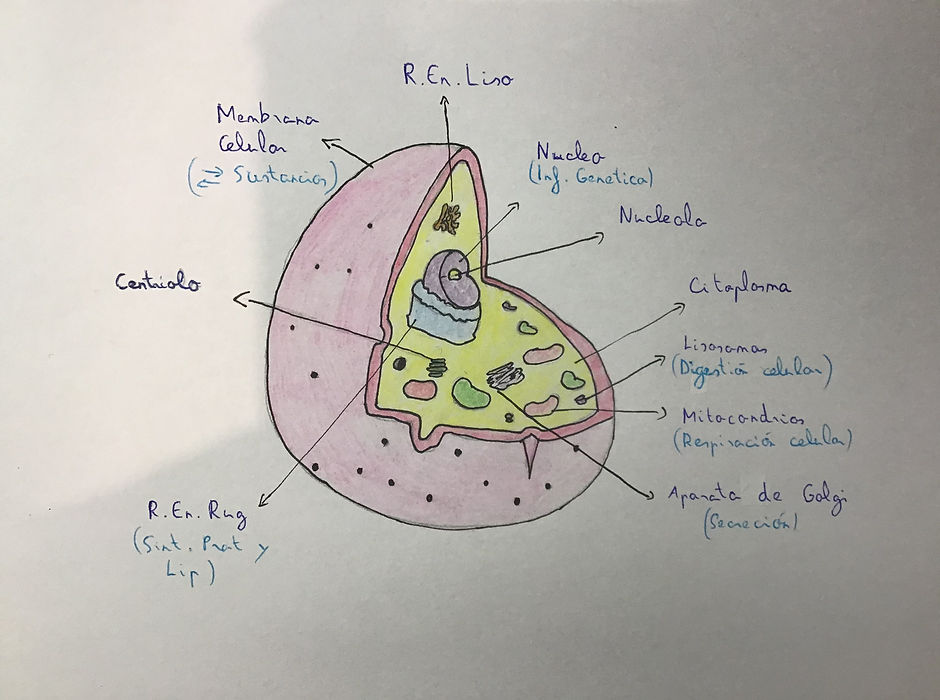 R.En.Liso
Membrana
Celular
(⇄ Sustancias)
Nucleo
(Inf. Genetica)
Nucleolo
Centriolo
Citoplasma
Lisosomas
(Digestión celular)
Mitocondrias
(Respiración celular)
Aparato de Golgi
(Secreción)
R.En.Rug
(Sint. Prot y
Lip)